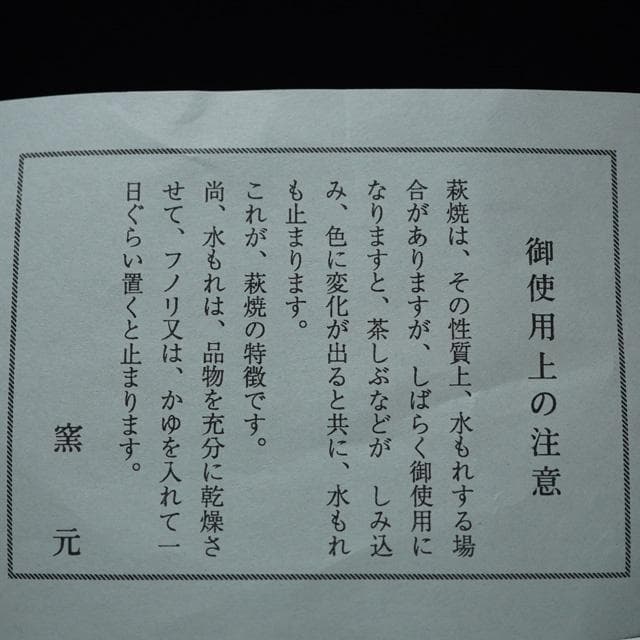 御使用上の注意
萩焼は、その性質上、水もれする場
合がありますが、しばらく御使用に
なりますと、茶しぶなどが しみ込
み、色に変化が出ると共に、水もれ
も止まります。
これが、萩焼の特徴です。
尚、水もれは、品物を充分に乾燥さ
せて、フノリ又は、かゆを入れて一
日ぐらい置くと止まります。
窯元